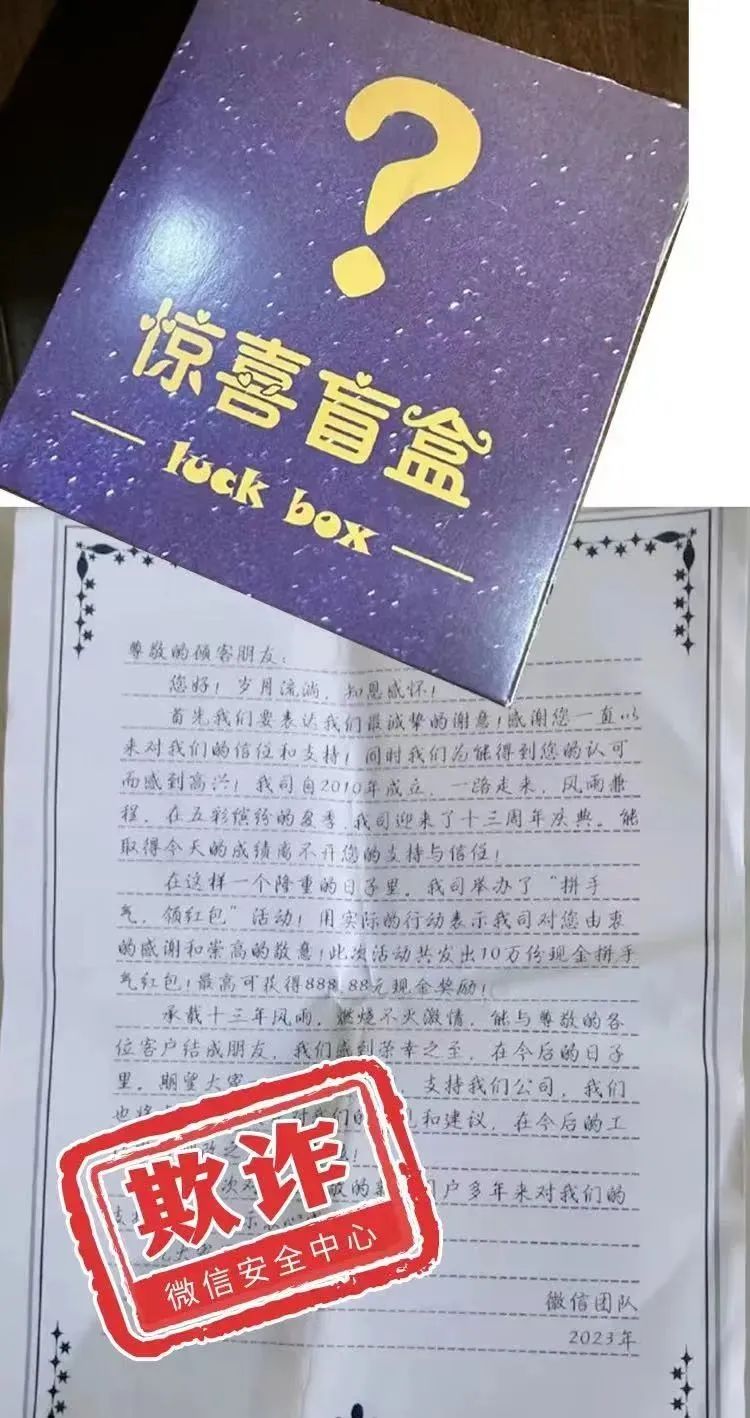 ?
惊喜盲盒
luck box
尊敬的顾客朋友：
您好！岁月流淌，知恩感怀！
首先我们要表达我们最诚挚的谢意！感谢您一直以
来对我们的信任和支持！同时我们为能得到您的认可
而感到高兴！我司自2010年成立，一路走来，风雨兼
程，在五彩缤纷的夏季，我司迎来了十三周年庆典。能
取得今天的成绩离不开您的支持与信任！
在这样一个隆重的日子里，我司举办了“拼手
气，领红包”活动！用实际的行动表示我司对您由衷
的感谢和崇高的敬意！此次活动共发出10万份现金拼手
气红包！最高可获得888.88元现金奖励！
承载十三年风雨，燃烧不灭激情，能与尊敬的各
位客户结成朋友，我们感到荣幸之至，在今后的日子
里，期望大家 支持我们公司，我们
也将 对我们的 见和建议，在今后的工
之
次对 敬的 户多年来对我们的
欺诈
微信安全中心
微信团队
2023年